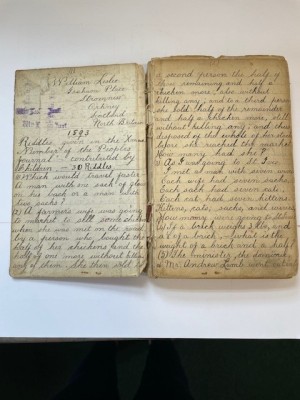 William Leslie
Stromness
Orkney
Scotland
North Britain
1893
Riddles given in the Xmas
Number of the Peoples
Journal - contributed by
Children. - 30 Riddles
Which would travel faster
a man with one sack of
on his back or a man with
two sacks?
(2) A farmers wife was going
to market to sell some
when she was met on the road
by a person who bought the
half of her chickens and the
half of one more without killing
any of them. She then sold to
a second person the half of
those remaining and half a
chicken more, also without
killing any; and to a third person
she sold half of the remainder
and half a chicken more, still
without killing any; and thus
disposed of the whole of her store
before she reached the market
How many had she?
As I was going to St. Ives
I met a man with seven wives
Each wife had seven sacks
Each sack had seven cats,
Each cat had seven kittens
Kittens, cats, sacks and wives
How many were going to St Ives
If a brick weighs 3 lbs, and
½ of a brick, what is the
weight of a brick and a half
(5) The minister, the
Mr Andrew Lamb